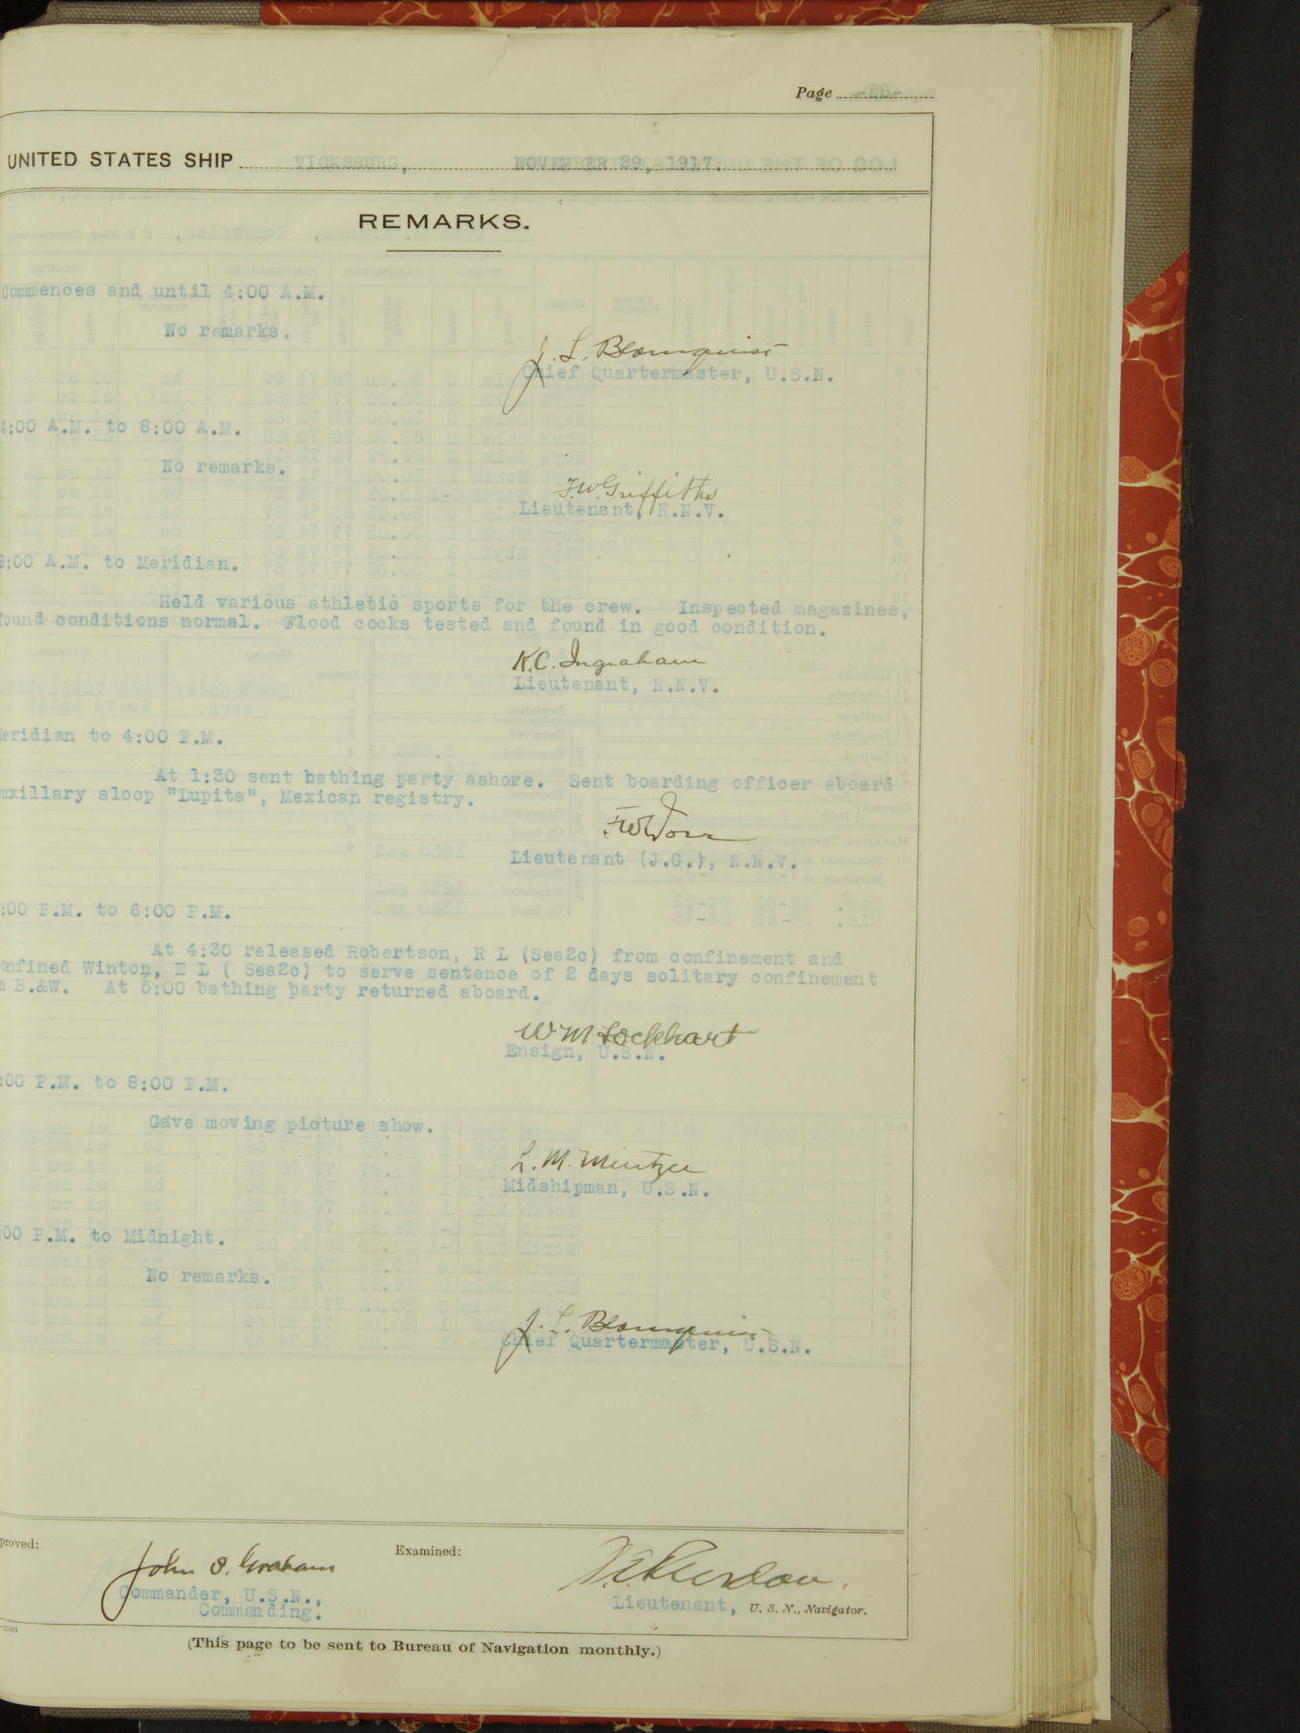 Page -88-
UNITED STATES SHIP VICKSBURG, NOVEMBER 29, 1917.
REMARKS.
Commences and until 4:00 A.M.
No remarks.
J. L. Blomquist
Chief Quartermaster, U.S.N.
4:00 A.M. to 8:00 A.M.
No remarks.
F.W. Griffiths
Lieutenant, N.N.V.
8:00 A.M. to Meridian.
Held various athletic sports for the crew. Inspected magazines,
found conditions normal. Flood cocks tested and found in good condition.
K.C. Ingraham
Lieutenant, N.N.V.
Meridian to 4:00 P.M.
At 1:30 sent bathing party ashore. Sent boarding officer aboard
uxillary sloop "Lupita", Mexican registry.
Lieutenant (J.G.), N.N.V.
:00 P.M. to 6:00 P.M.
At 4:30 released Robertson, R L (Sea2c) from confinement and
onfined Winton, E L ( Sea2c) to serve sentence of 2 days solitary confinement
n B.&W. At 5:00 bathing party returned aboard.
W M Lockhart
Ensign, U.S.N.
:00 P.M. to 8:00 P.M.
Gave moving picture show.
L. M. Mintzer
Midshipman, U.S.N.
:00 P.M. to Midnight.
No remarks.
J. L. Blomquist
Chief Quartermaster, U.S.N.
proved:
John S. Graham
Commander, U.S.N.,
Commanding.
Examined:
Lieutenant, U. S. N., Navigator.
(This page to be sent to Bureau of Navigation monthly.)